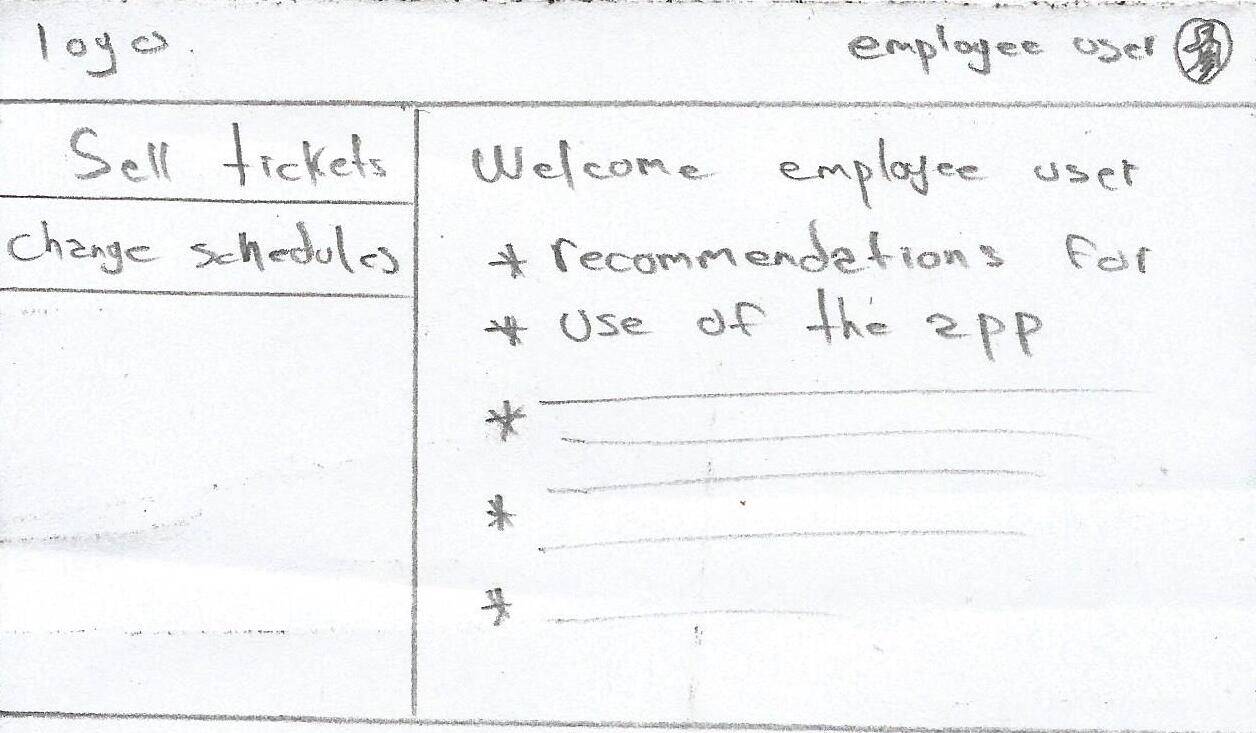 logo.
employee user
Sell tickets
change schedules
Welcome employee user
* recommendations for
* Use of the app
*
*
*